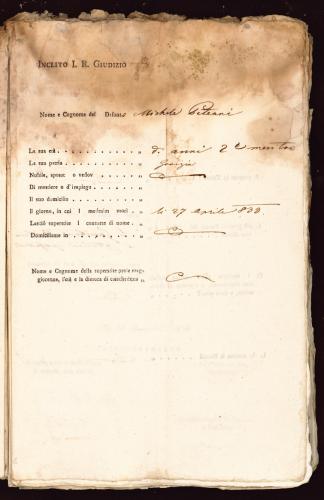 INCLITO I. R. GIUDIZIO
Nome e Cognome del Defunto Michele Piteani
La sua età . . . . . . . . . . „ di anni 2 e mesi tre
La sua patria . . . . . . . . . „ Gorizia
Nubile, sposat o vedov . . . . . . „
Di mestiere o d'impiego . . . . . . „
Il suo domicilio . . . . . . . . „
Il giorno, in cui l medesim morì . . . „ li 27 Aprile 1832.
Lasciò superstite l consorte di nome . . „
Domiciliante in . . . . . . . . „
Nome e Cognome della superstite prole